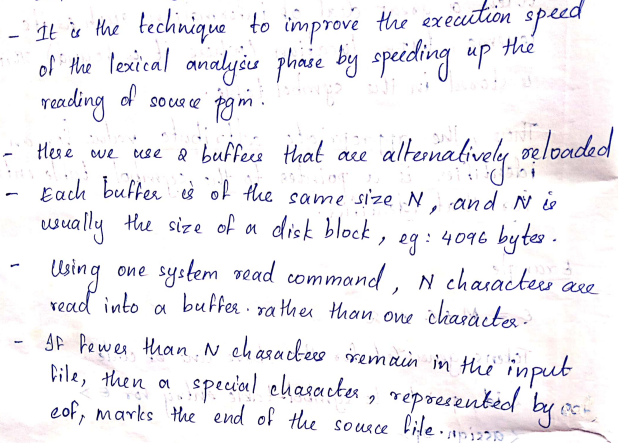 - It is the technique to improve the execution speed
of the lexical analysis phase by speeding up the
reading of source pgm.
- Here we use 2 buffers that are alternatively reloaded
- Each buffer is of the same size N, and N is
usually the size of a disk block, eg: 4096 bytes.
- Using one system read command, N characters are
read into a buffer. rather than one character.
- If fewer than N characters remain in the input
file, then a special character, represented by
eof, marks the end of the source file.